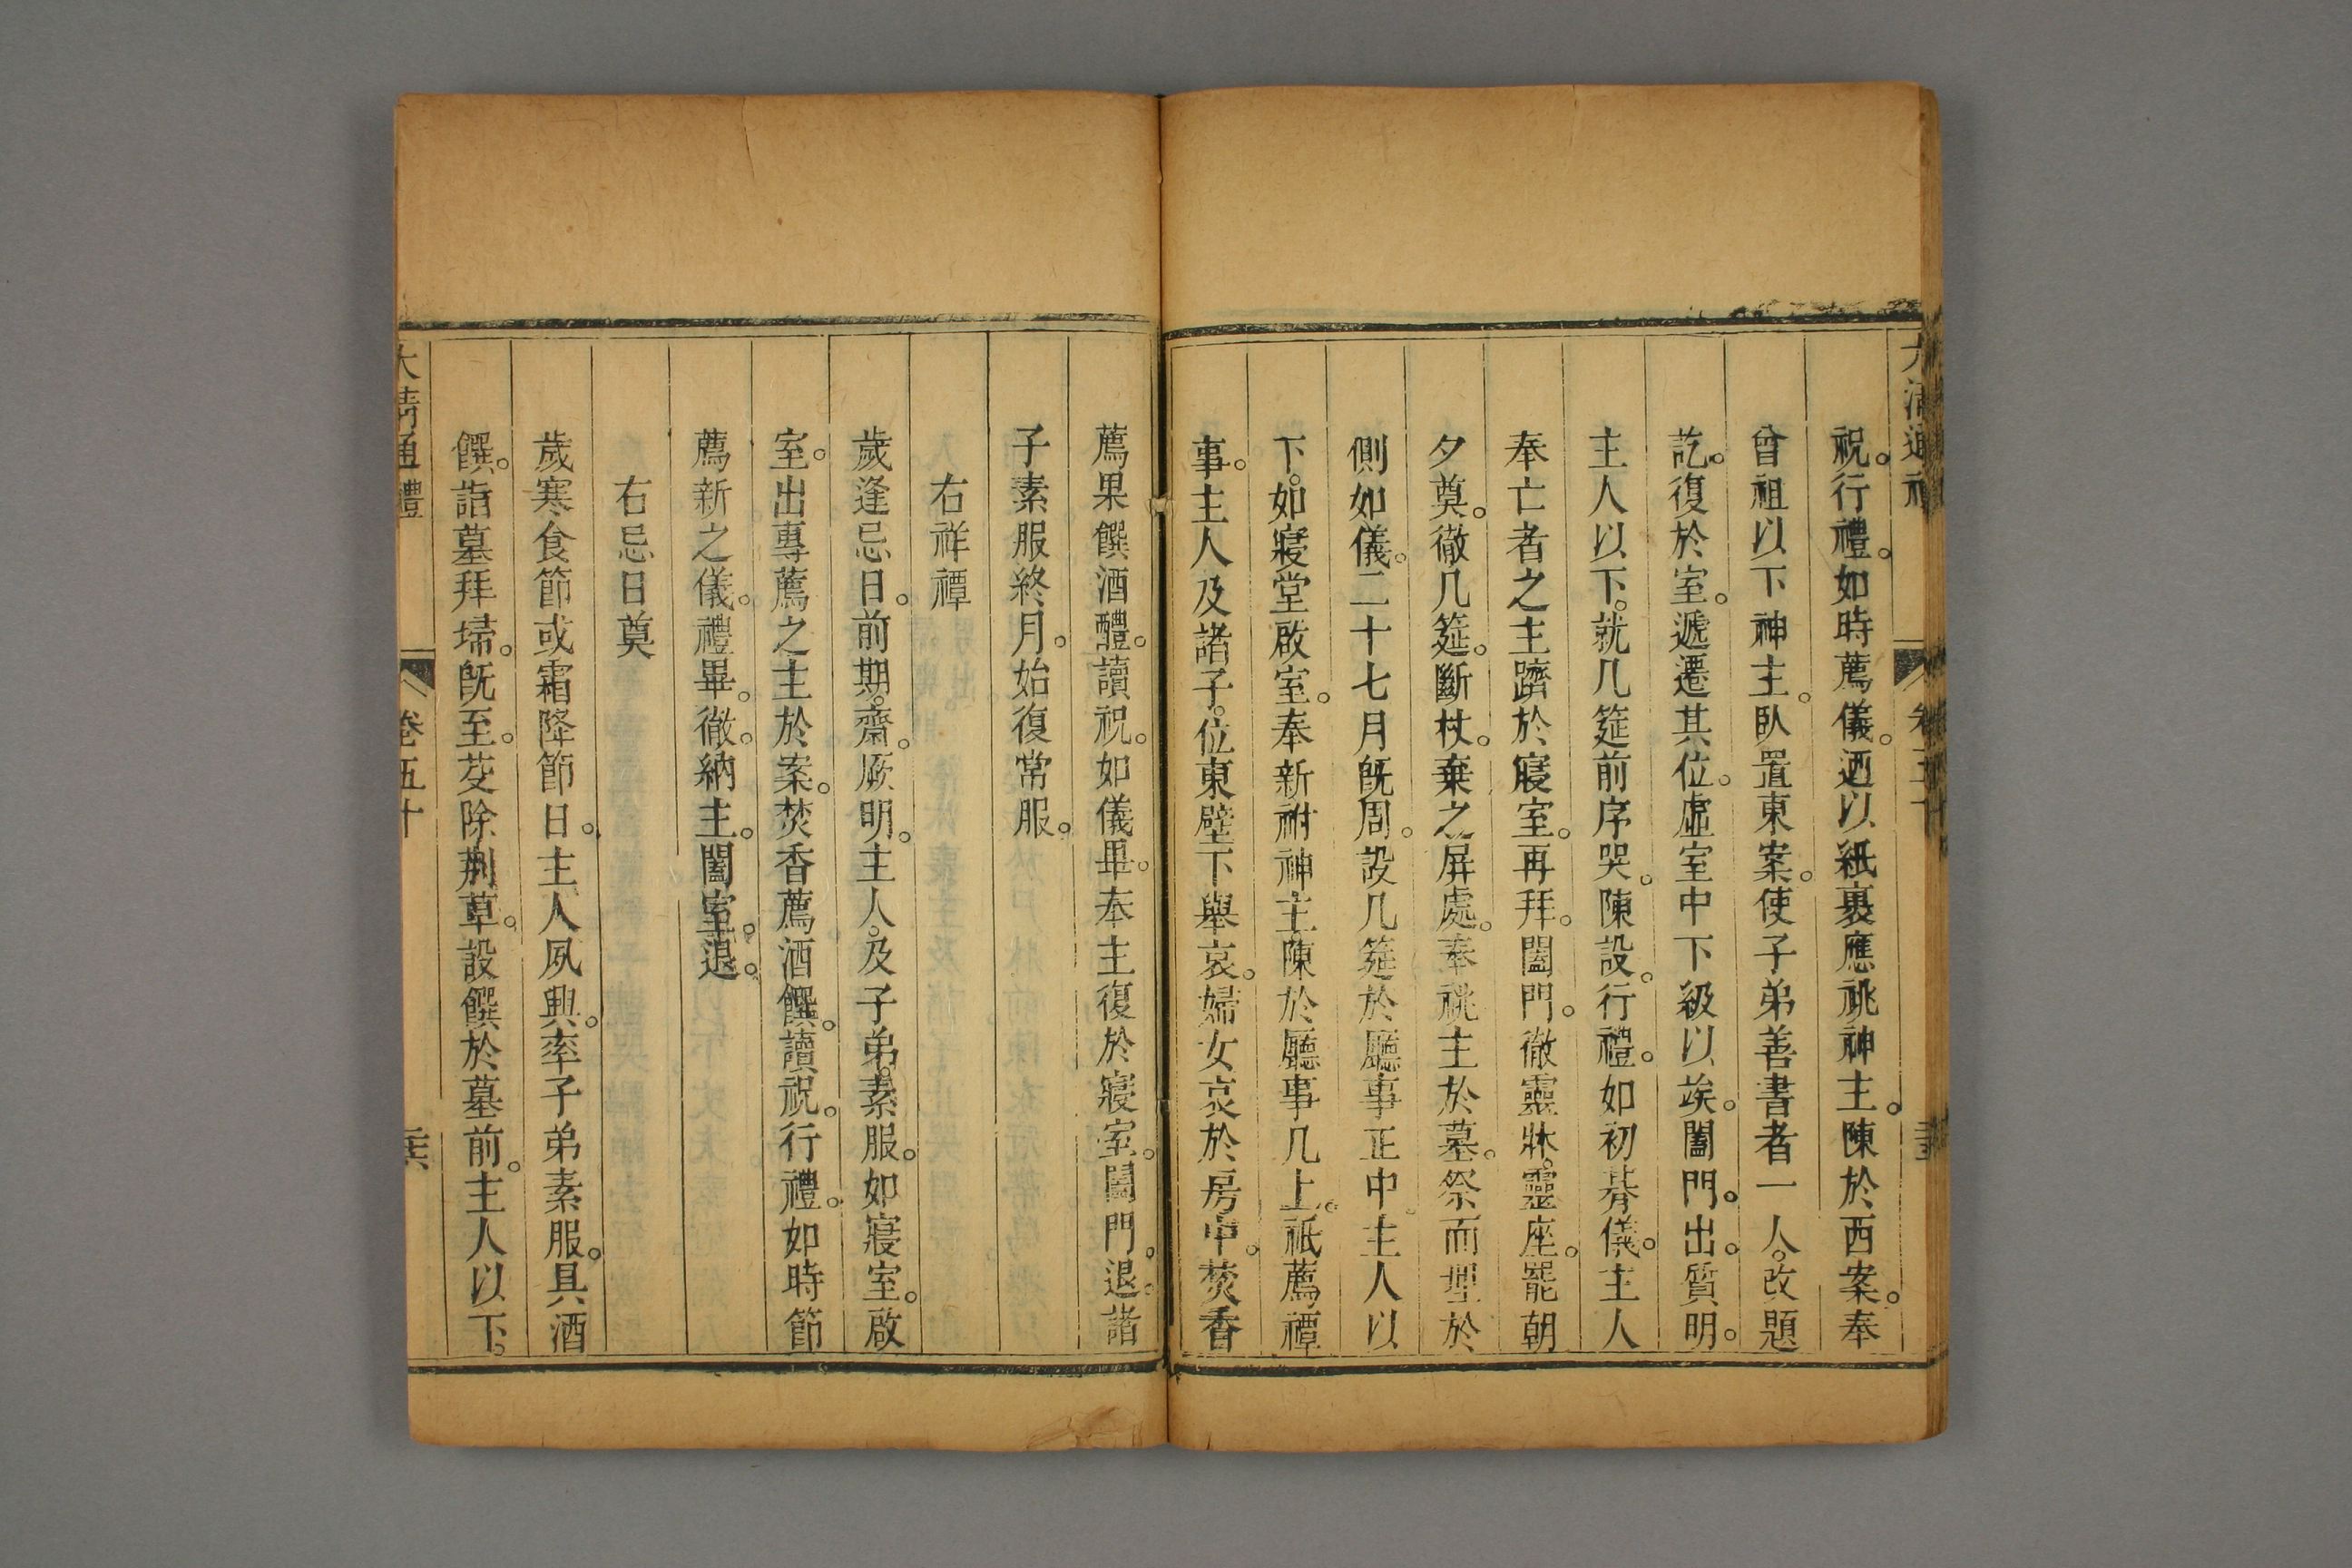 祝。行禮。如時薦儀。迺以紙裹應祧神主。陳於西案。奉
曾祖以下神主。臥置東案。使子弟善書者一人。改題
訖。復於室。遞遷其位。虛室中下級以俟。闔門。出。質明。
主人以下。就几筵前序哭。陳設。行禮。如初朞儀。主人
奉亡者之主躋於寢室。再拜。闔門。徹靈牀。靈座。罷朝
夕奠。徹几筵。斷杖。棄之屏處。奉祧主於墓。祭而埋於
側如儀。二十七月旣周。設几筵於廳事正中。主人以
下。如寢堂啟室。奉新祔神主。陳於廳事几上。祗薦禫
事。主人及諸子。位東壁下舉哀。婦女哀於房中。焚香
薦果饌酒醴。讀祝。如儀畢。奉主復於寢室。闔門。退。諸
子素服終月。始復常服。
右祥禫
歲逢忌日。前期。齋。厥明。主人。及子弟。素服。如寢室。啟
室。出專薦之主於案。焚香薦酒饌。讀祝。行禮。如時節
薦新之儀。禮畢。徹。納主。闔室。退。
右忌日奠
歲寒食節或霜降節日。主人夙興。率子弟素服。具酒
饌。詣墓拜埽。旣至。芟除荆草。設饌於墓前。主人以下。
大清通禮 卷五十